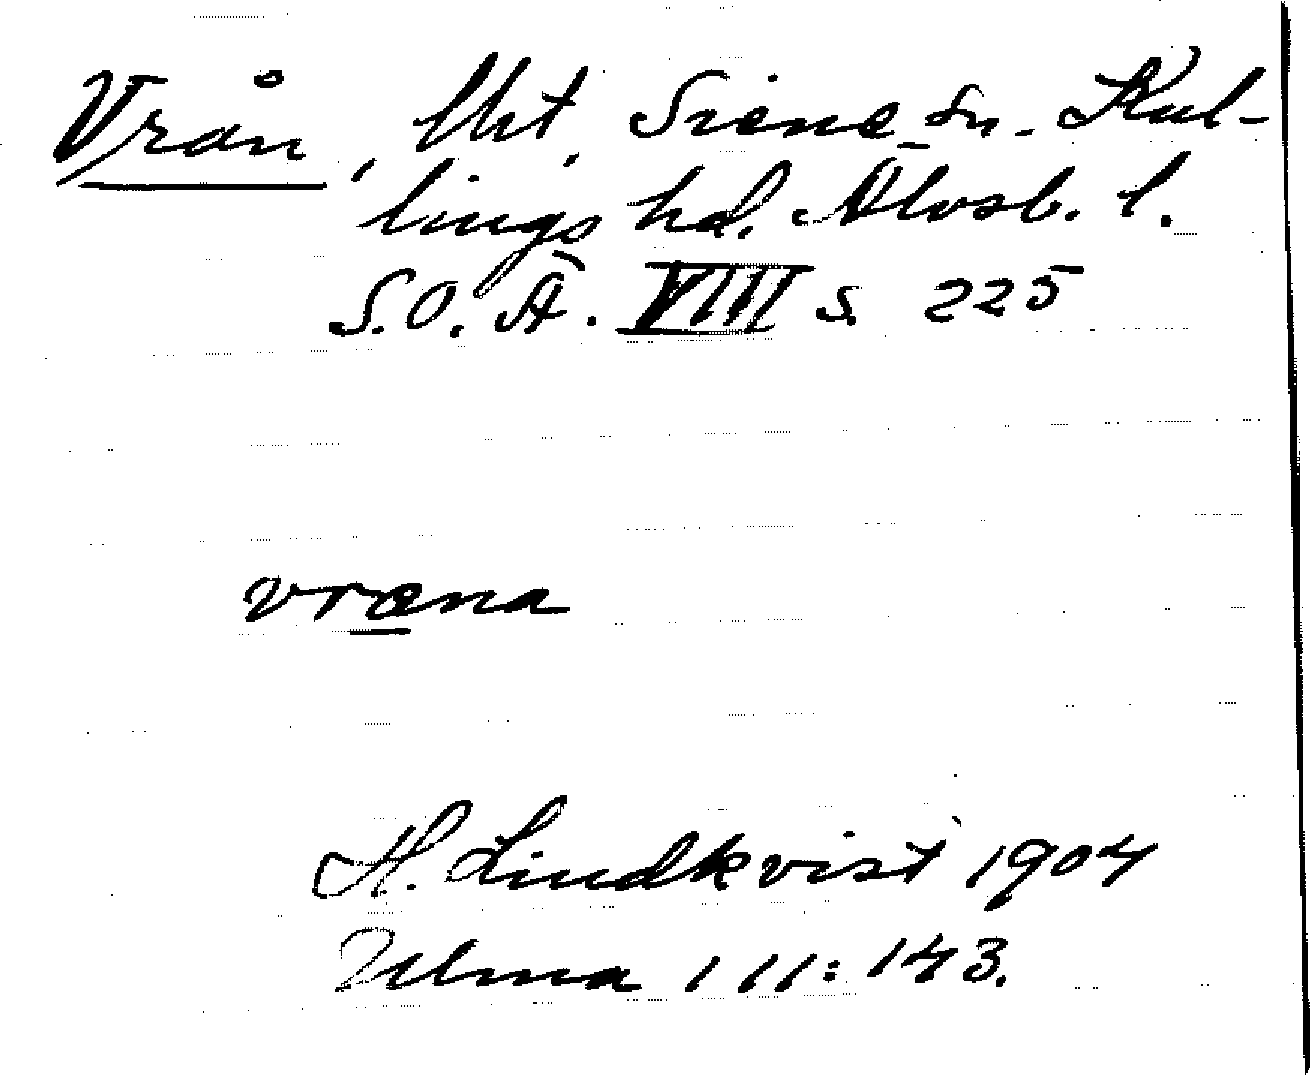 Vrån, lht, Siene sn. Kul-
lings hd. Älvsb. l.
S.O.Ä. VIII s. 225
vræna
H. Lindkvist 1904
Ulma 111:143.